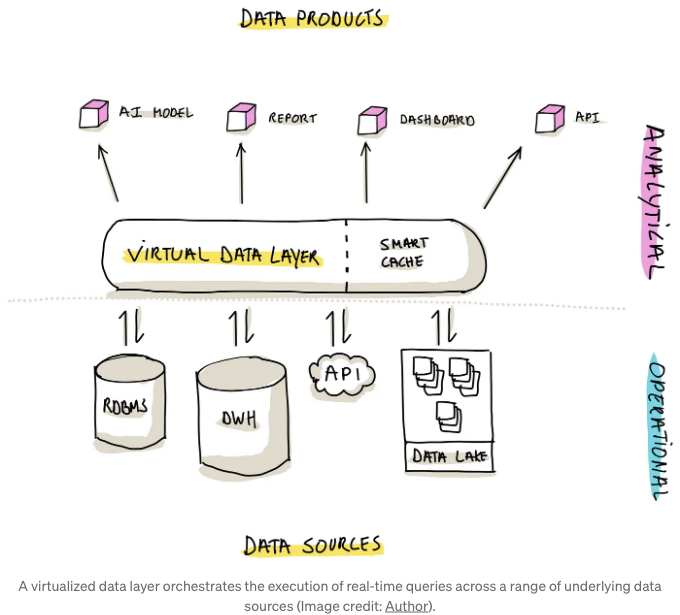 DATA PRODUCTS
AI MODEL
REPORT
DASHBOARD
API
ANALYTICAL
VIRTUAL DATA LAYER
SMART
CACHE
RDBMS
DWH
API
DATA LAKE
OPERATIONAL
DATA SOURCES
A virtualized data layer orchestrates the execution of real-time queries across a range of underlying data
sources (Image credit: Author).